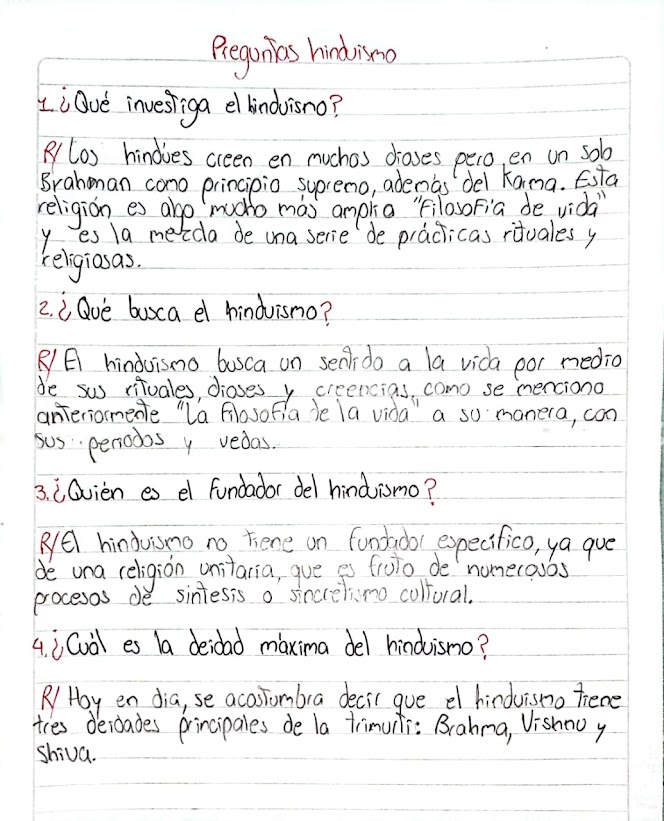 Preguntas hinduismo
1. ¿Qué investiga el hinduismo?
R/ Los hindúes creen en muchos dioses pero en un solo
Brahman como principio supremo, además del Karma. Esta
religión es algo mucho más amplio "Filosofía de vida"
y es la mezcla de una serie de prácticas rituales y
religiosas.
2. ¿Qué busca el hinduismo?
R/ El hinduismo busca un sentido a la vida por medio
de sus rituales, dioses y creencias, como se menciono
anteriormente "La filosofía de la vida" a su manera, con
sus periodos y vedas.
3. ¿Quién es el fundador del hinduismo?
R/ El hinduismo no tiene un fundador específico, ya que
de una religión unitaria, que es fruto de numerosos
procesos de síntesis o sincretismo cultural.
4. ¿Cuál es la deidad máxima del hinduismo?
R/ Hoy en dia, se acostumbra decir que el hinduismo tiene
tres deidades principales de la trimurti: Brahma, Vishnu y
Shiva.